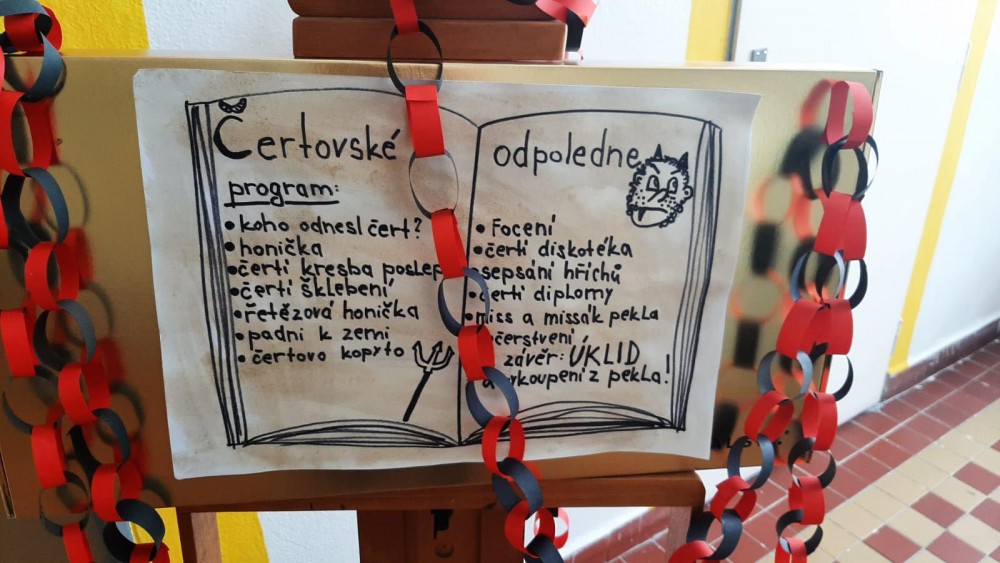 Čertovské
program:
• koho odnesl čert?
• honička
• čertí kresba poslep
• čertí šklebení
• řetězová honička
• padni k zemi
• čertovo kopyto
odpoledne
• Focení
• čertí diskotéka
sepsání hříchů
• čertí diplomy
• miss a missák pekla
občerstvení
závěr: ÚKLID
a vykoupení z pekla!